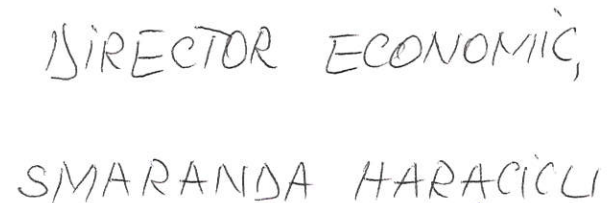 DIRECTOR ECONOMIC,
SMARANDA HARACICU